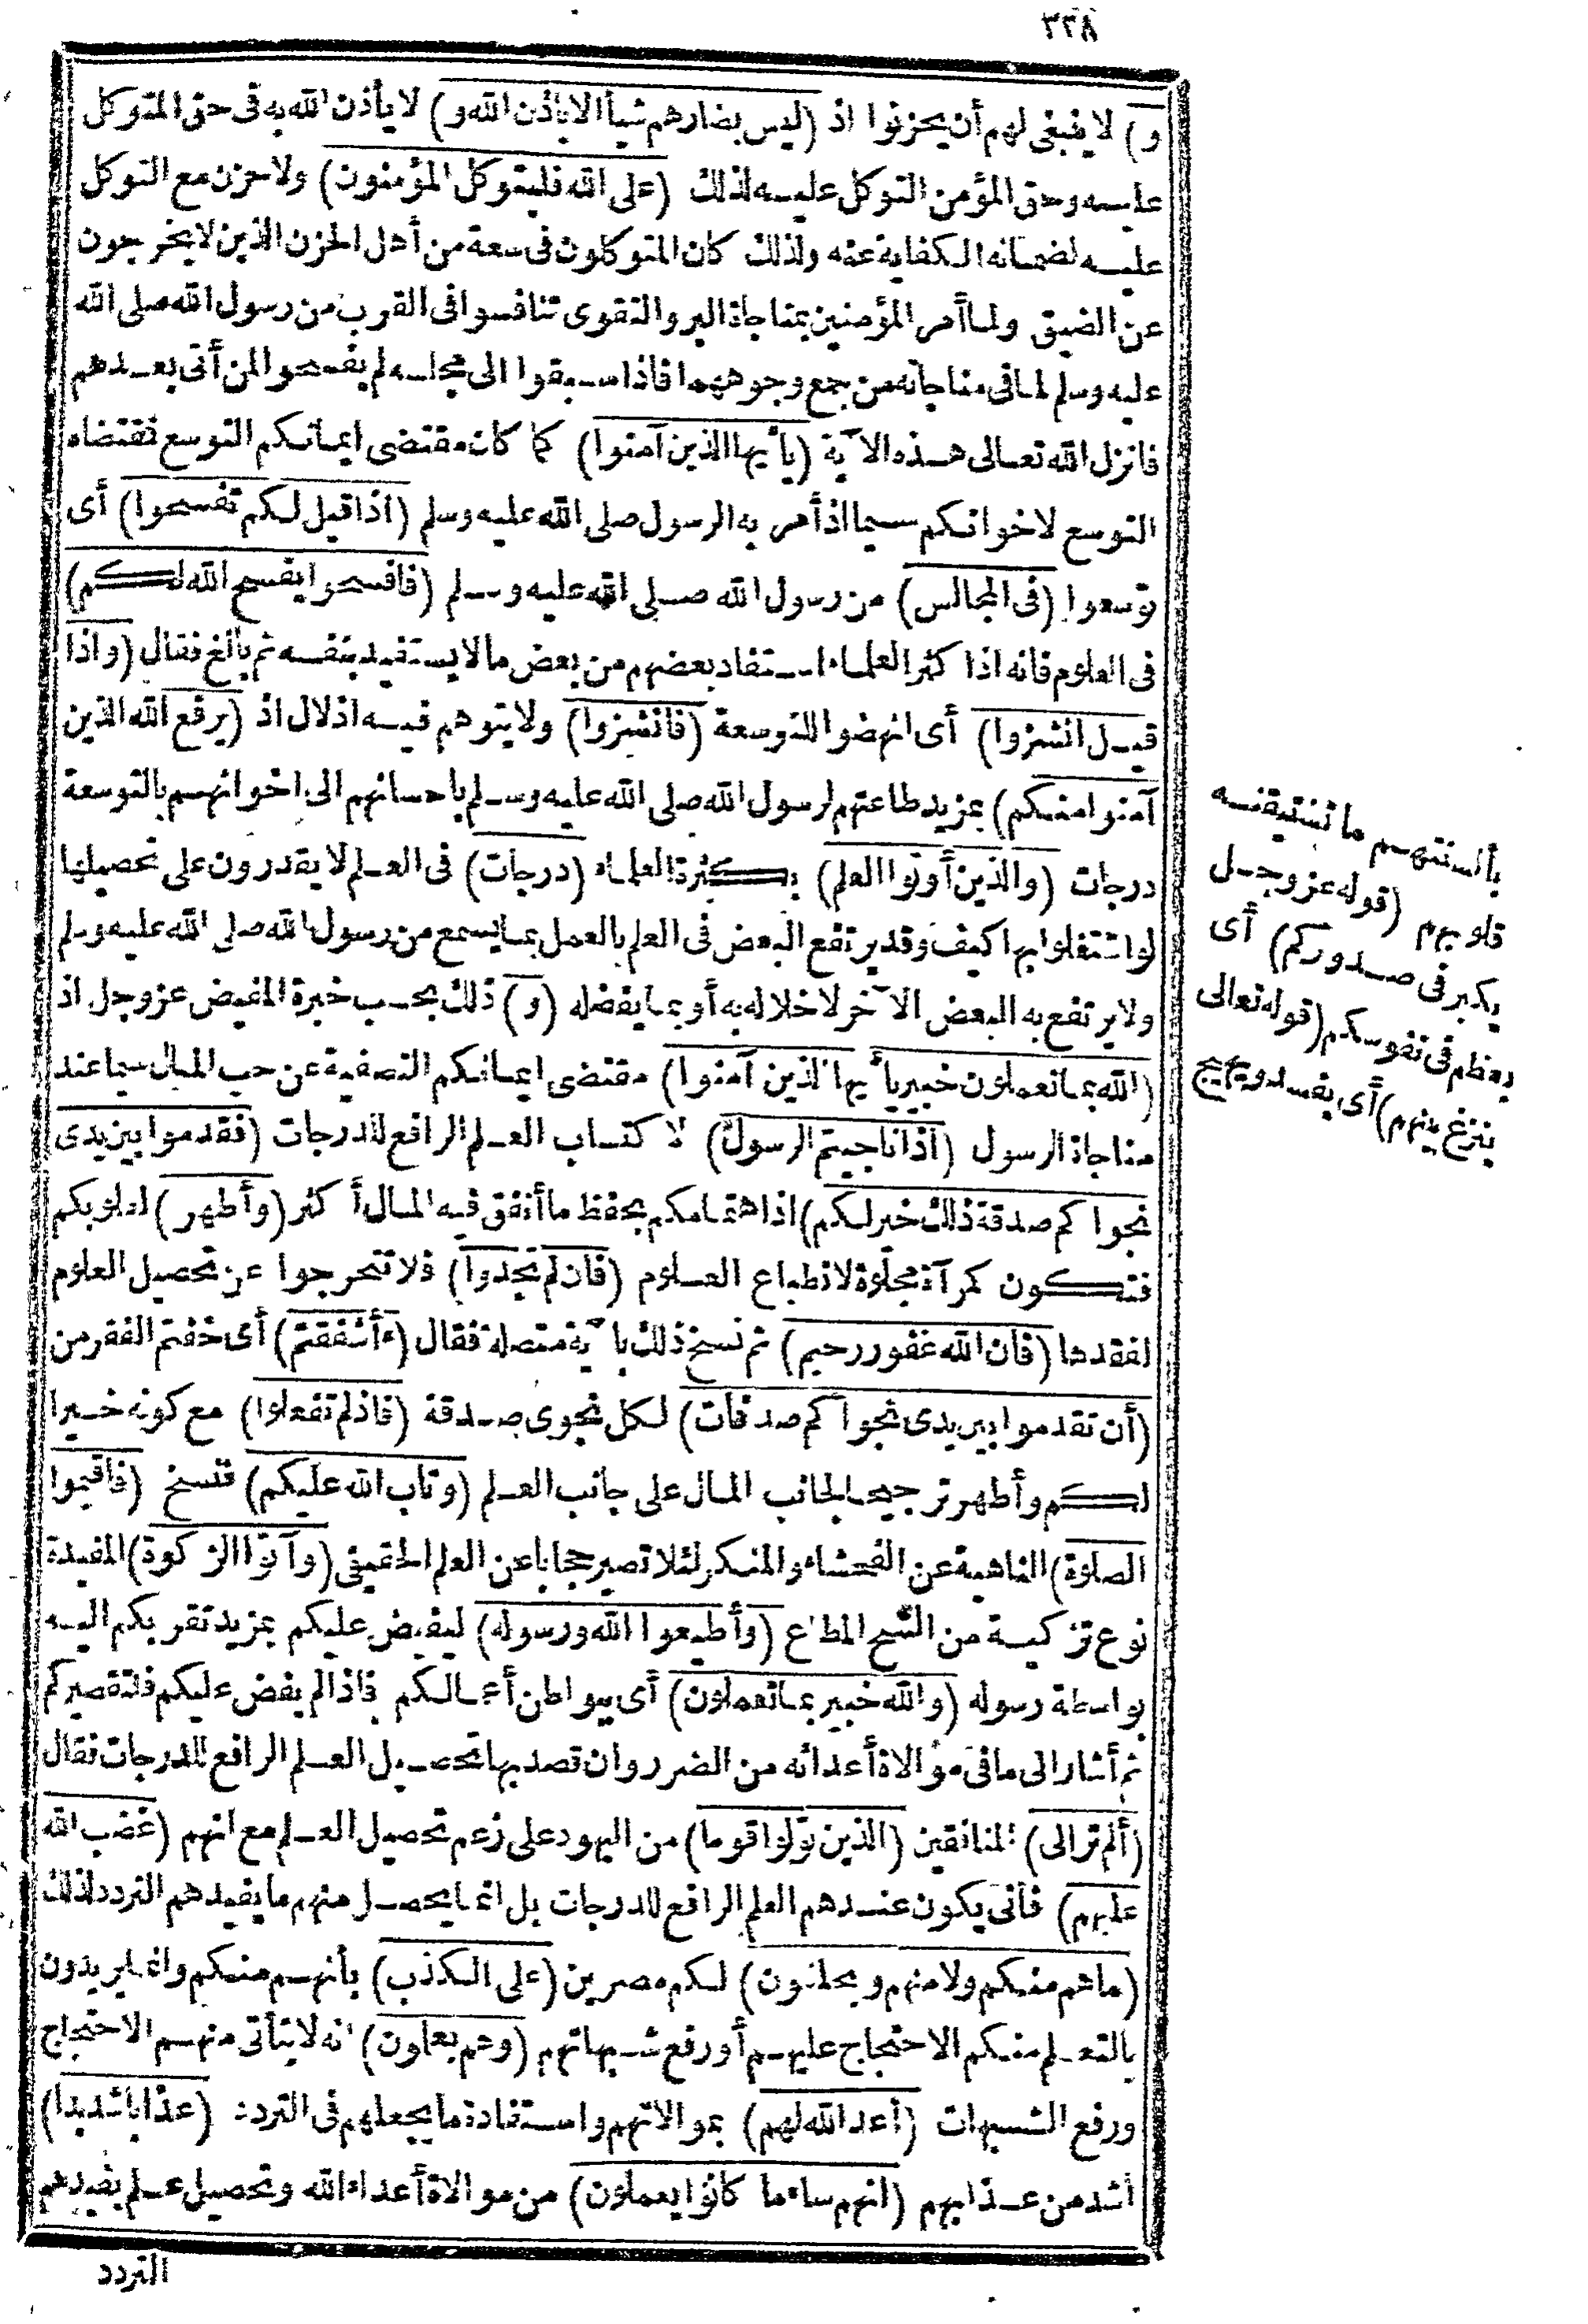 ٣٣٨
و) لا ينبغى لهم أن يحزنوا اذ (ليس بضارهم شيأ الا باذن الله و) لا يأذن الله به فى حق المتوكل
عليه وحق المؤمن التوكل عليه لذلك (على الله فليتوكل المؤمنون) ولا حزن مع التوكل
عليه لضمانه الكفاية عنه ولذلك كان المتوكلون فى سعة من أهل الحزن الذين لا يخرجون
عن الضيق ولما أمر المؤمنين بمناجاة البر والتقوى تنافسوا فى القرب من رسول الله صلى الله
عليه وسلم لما فى مناجاته من جمع وجوههما فاذا سبقوا الى مجلسه لم يفسحوا لمن أتى بعدهم
فانزل الله تعالى هذه الآية (يا أيها الذين آمنوا) كما كان مقتضى ايمانكم التوسع فقتضاه
التوسع لاخوانكم سيما اذ أمر به الرسول صلى الله عليه وسلم (اذا قيل لكم تفسحوا) أى
توسعوا (فى المجالس) من رسول الله صلى الله عليه وسلم (فافسحوا يفسح الله لكم)
فى العلوم فانه اذا كثر العلماء استفاد بعضهم من بعض ما لا يستفيد بنفسه ثم بالغ فقال (واذا
قيل انشزوا) أى انهضوا للتوسعة (فانشزوا) ولا يتوهم فيه اذلال اذ (يرفع الله الذين
آمنوا منكم) بمزيد طاعتهم لرسول الله صلى الله عليه وسلم باحسانهم الى اخوانهم بالتوسعة
درجات (والذين أوتوا العلم) بكثرة العلماء (درجات) فى العلم لا يقدرون على تحصيلها
لو اشتغلوا بها كيف وقد يرتفع البعض فى العلم بالعمل بما يسمع من رسول الله صلى الله عليه وسلم
ولا يرتفع به البعض الآخر لاخلاله به أو بما يفضله (و) ذلك بحسب خبرة المفيض عز وجل اذ
(الله بما تعملون خبير يا أيها الذين آمنوا) مقتضى ايمانكم التصفية عن حب المال سيما عند
مناجاة الرسول (اذا ناجيتم الرسول) لاكتساب العلم الرافع للدرجات (فقدموا بين يدى
نجواكم صدقة ذلك خير لكم) اذ اهتمامكم بحفظ ما أنفق فيه المال أكثر (وأطهر) لقلوبكم
فتكون كمرآة مجلوة لانطباع العلوم (فان لم تجدوا) فلا تتحرجوا عن تحصيل العلوم
لفقدها (فان الله غفور رحيم) ثم نسخ ذلك بآية متصلة فقال (ءأشفقتم) أى خفتم الفقر من
(أن تقدموا بين يدى نجواكم صدقات) لكل نجوى صدقة (فاذ لم تفعلوا) مع كونه خيرا
لكم وأطهر ترجيحا لجانب المال على جانب العلم (وتاب الله عليكم) فنسخ (فاقيموا
الصلوة) الناهية عن الفحشاء والمنكر لئلا تصير حجابا عن العلم الحقيقى (وآتوا الزكوة) المفيدة
نوع تزكية من الشح المطاع (وأطيعوا الله ورسوله) ليفيض عليكم بمزيد تقربكم اليه
بواسطة رسوله (والله خبير بما تعملون) أى ببواطن أعمالكم فاذا لم يفض عليكم فلتقصيركم
ثم أشار الى ما فى موالاة أعدائه من الضرر وان قصد بها تحصيل العلم الرافع للدرجات فقال
(ألم تر الى) المنافقين (الذين تولوا قوما) من اليهود على زعم تحصيل العلم مع انهم (غضب الله
عليهم) فأنى يكون عندهم العلم الرافع للدرجات بل انما يحصل منهم ما يفيدهم التردد لذلك
(ما هم منكم ولا منهم ويحلفون) لكم مصرين (على الكذب) بأنهم منكم وانما يريدون
بالتعلم منكم الاحتجاج عليهم أو رفع شبهاتهم (وهم يعلمون) انه لا يتأتى منهم الاحتجاج
ورفع الشبهات (أعد الله لهم) بموالاتهم واستفادة ما يجعلهم فى التردد (عذابا شديدا)
أشد من عذابهم (انهم ساء ما كانوا يعملون) من موالاة أعداء الله وتحصيل علم يفيدهم
التردد
بألسنتهم ما تستيقنه
قلوبهم (قوله عز وجل
يكبر فى صدوركم) أى
يعظم فى نفوسكم (قوله تعالى
ينزغ بينهم) أى يفسد ويهيج